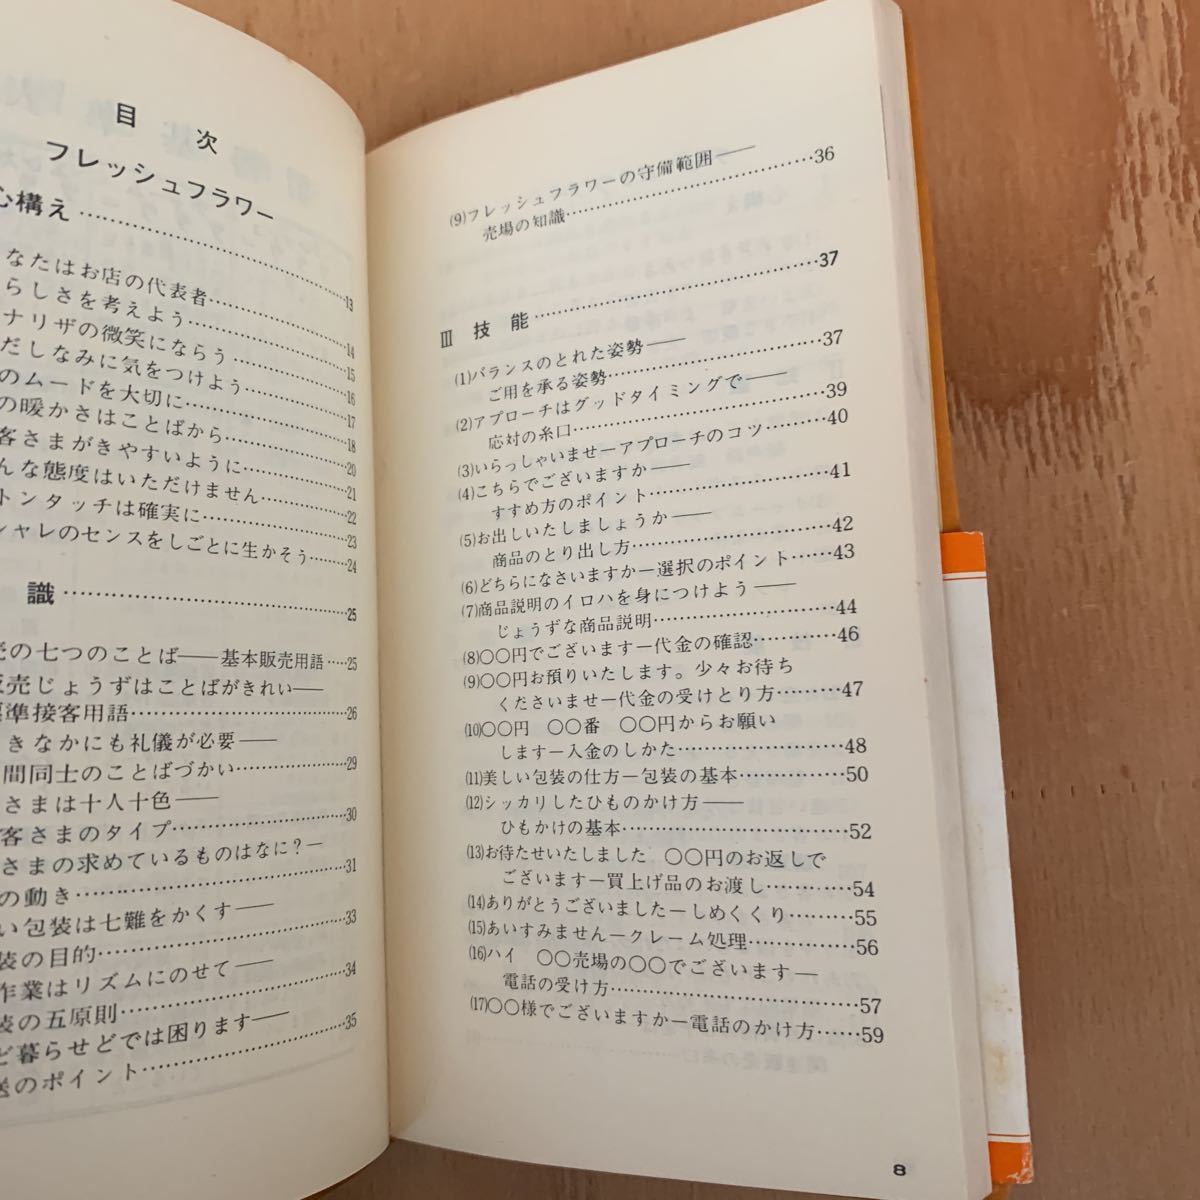 目次
フレッシュフラワー
心構え…………13
なたはお店の代表者…………13
らしさを考えよう…………14
ナリザの微笑にならう…………15
だしなみに気をつけよう…………16
のムードを大切に…………17
の暖かさはことばから…………18
客さまがきやすいように…………20
んな態度はいただけません…………21
トンタッチは確実に…………22
シャレのセンスをしごとに生かそう…………23
識…………25
の七つのことば――基本販売用語……25
販売じょうずはことばがきれい――
標準接客用語…………26
きなかにも礼儀が必要――
間同士のことばづかい…………29
さまは十人十色――
客さまのタイプ…………30
さまの求めているものはなに?―
の動き…………31
い包装は七難をかくす――
装の目的…………33
作業はリズムにのせて――
装の五原則…………34
ど暮らせどでは困ります――
送のポイント…………35
(9)フレッシュフラワーの守備範囲――
売場の知識…………36
Ⅲ 技能…………37
(1)バランスのとれた姿勢――
ご用を承る姿勢…………37
(2)アプローチはグッドタイミングで――
応対の糸口…………39
(3)いらっしゃいませ―アプローチのコツ…………40
(4)こちらでございますか――
すすめ方のポイント…………41
(5)お出しいたしましょうか――
商品のとり出し方…………42
(6)どちらになさいますか―選択のポイント……43
(7)商品説明のイロハを身につけよう――
じょうずな商品説明…………44
(8)〇〇円でございます―代金の確認…………46
(9)〇〇円お預りいたします。少々お待ち
くださいませ―代金の受けとり方………47
(10)〇〇円 〇〇番 〇〇円からお願い
します―入金のしかた…………48
(11)美しい包装の仕方―包装の基本…………50
(12)シッカリしたひものかけ方――
ひもかけの基本…………52
(13)お待たせいたしました 〇〇円のお返しで
ございます―買上げ品のお渡し…………54
(14)ありがとうございました―しめくくり………55
(15)あいすみません―クレーム処理…………56
(16)ハイ 〇〇売場の〇〇でございます―
電話の受け方…………57
(17)〇〇様でございますか―電話のかけ方……59
8